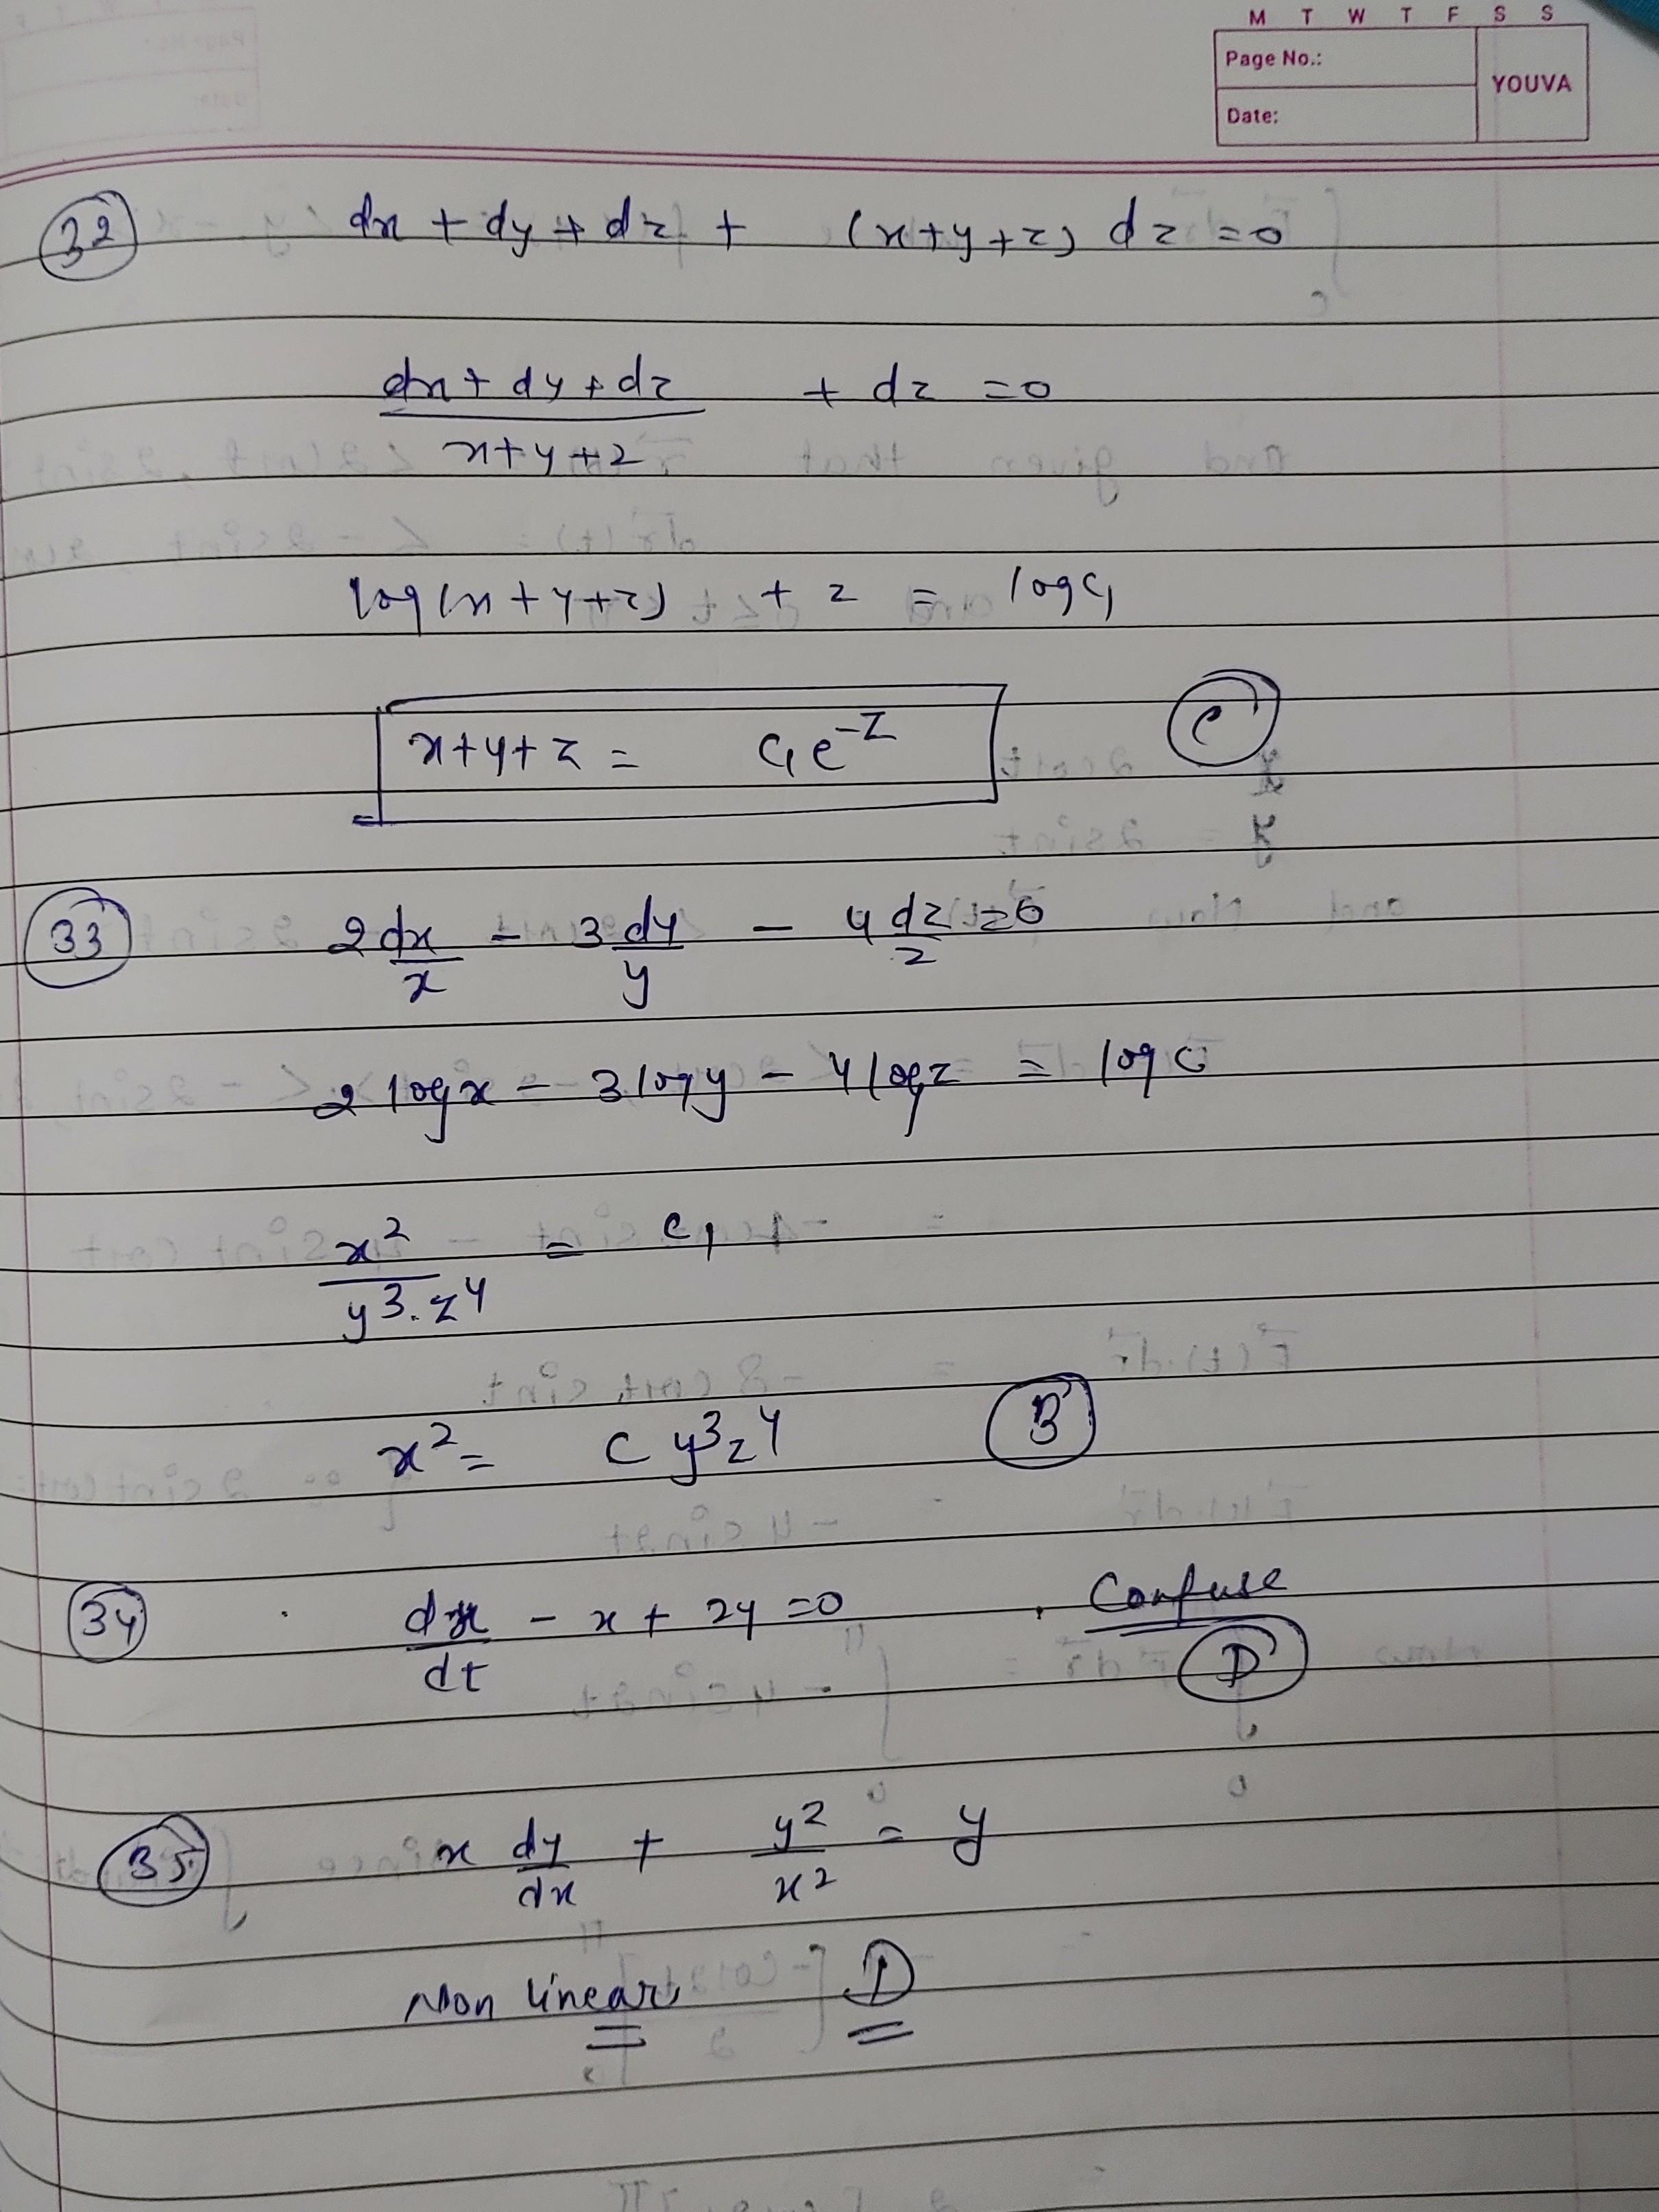 M T W T F S S
Page No.:
YOUVA
Date:
32 dx + dy + dz + (x+y+z) dz = 0
dx + dy + dz / x+y+z + dz = 0
log(x+y+z) + z = log c₁
x+y+z = c₁e⁻ᶻ C
33 2 dx/x - 3 dy/y - 4 dz/z = 0
2 log x - 3 log y - 4 log z = log c
x² / y³.z⁴ = c₁
x² = c y³z⁴ B
34 dx/dt - x + 2y = 0 Confuse
D
35 x dy/dx + y²/x² = y
Non linear D